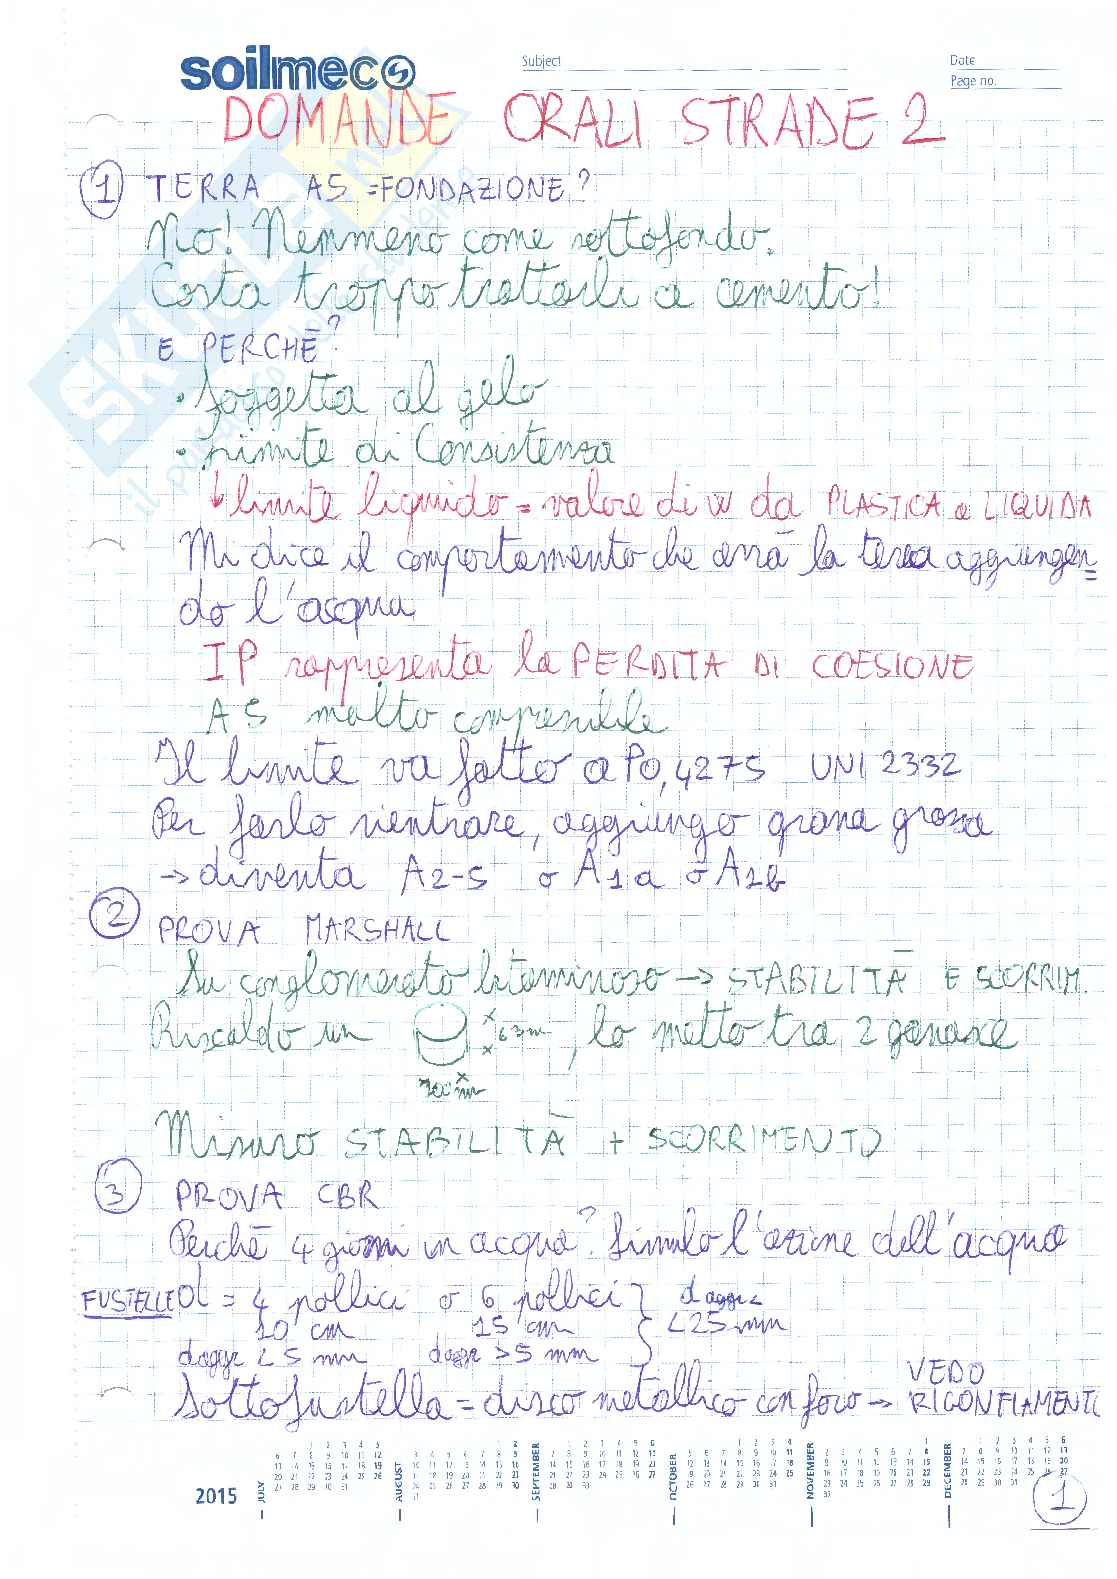 soilmec
Subject
Date
Page no.
DOMANDE ORALI STRADE 2
1 TERRA A5 = FONDAZIONE?
No! Nemmeno come sottofondo.
Costa troppo trattarli a cemento!
E PERCHĒ?
• Soggetta al gelo
• Limite di Consistenza
↓ limite liquido = valore di w da PLASTICA a LIQUIDA
Mi dice il comportamento che avrà la terra aggiungen
do l'acqua
IP rappresenta la PERDITA DI COESIONE
A5 molto compressibile
Il limite va fatto a P0,4275 UNI 2332
Per farlo rientrare, aggiungo grana grossa
→ diventa A2-5 o A1a o A1b
2 PROVA MARSHALL
Su conglomerato bituminoso → STABILITĀ E SCORRIM.
Riscaldo un 63mm, lo metto tra 2 ganasce
100mm
Misuro STABILITĀ + SCORRIMENTO
3 PROVA CBR
Perchē 4 giorni in acqua? Simulo l'azione dell'acqua
FUSTELLE d = 4 pollici o 6 pollici } daggr
10 cm 15 cm <25 mm
daggr < 5 mm daggr > 5 mm
VEDO
Sottofustella = disco metallico con foro → RIGONFIAMENTI
2015 JULY AUGUST SEPTEMBER OCTOBER NOVEMBER DECEMBER
1